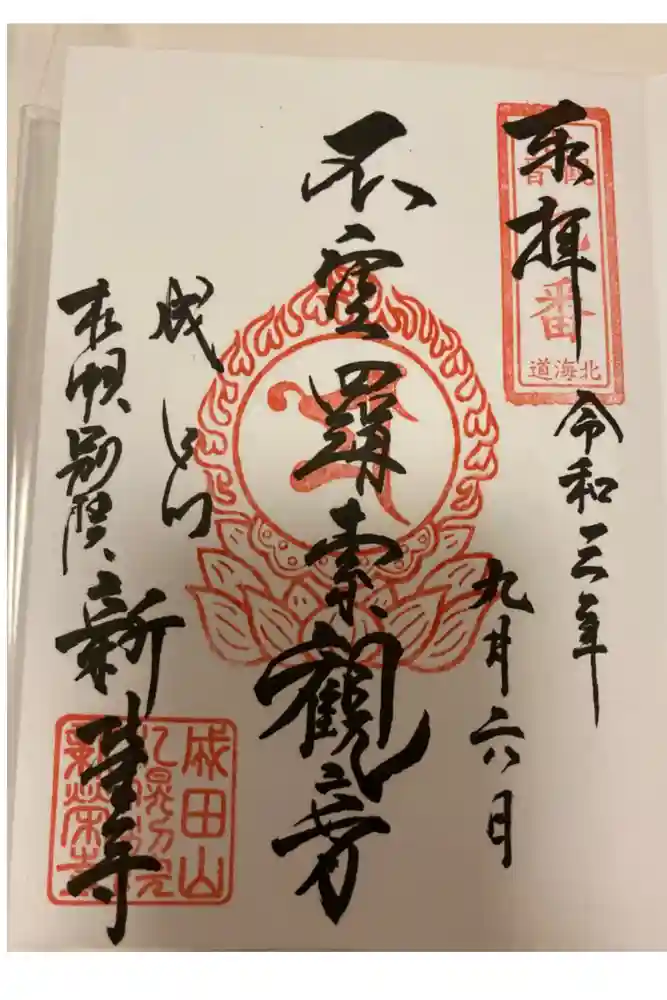 奉拝
令和三年
九月六日
不空羂索観音
成田山
札幌別院
新栄寺
番
北海道
成田山
札幌別院
新榮寺